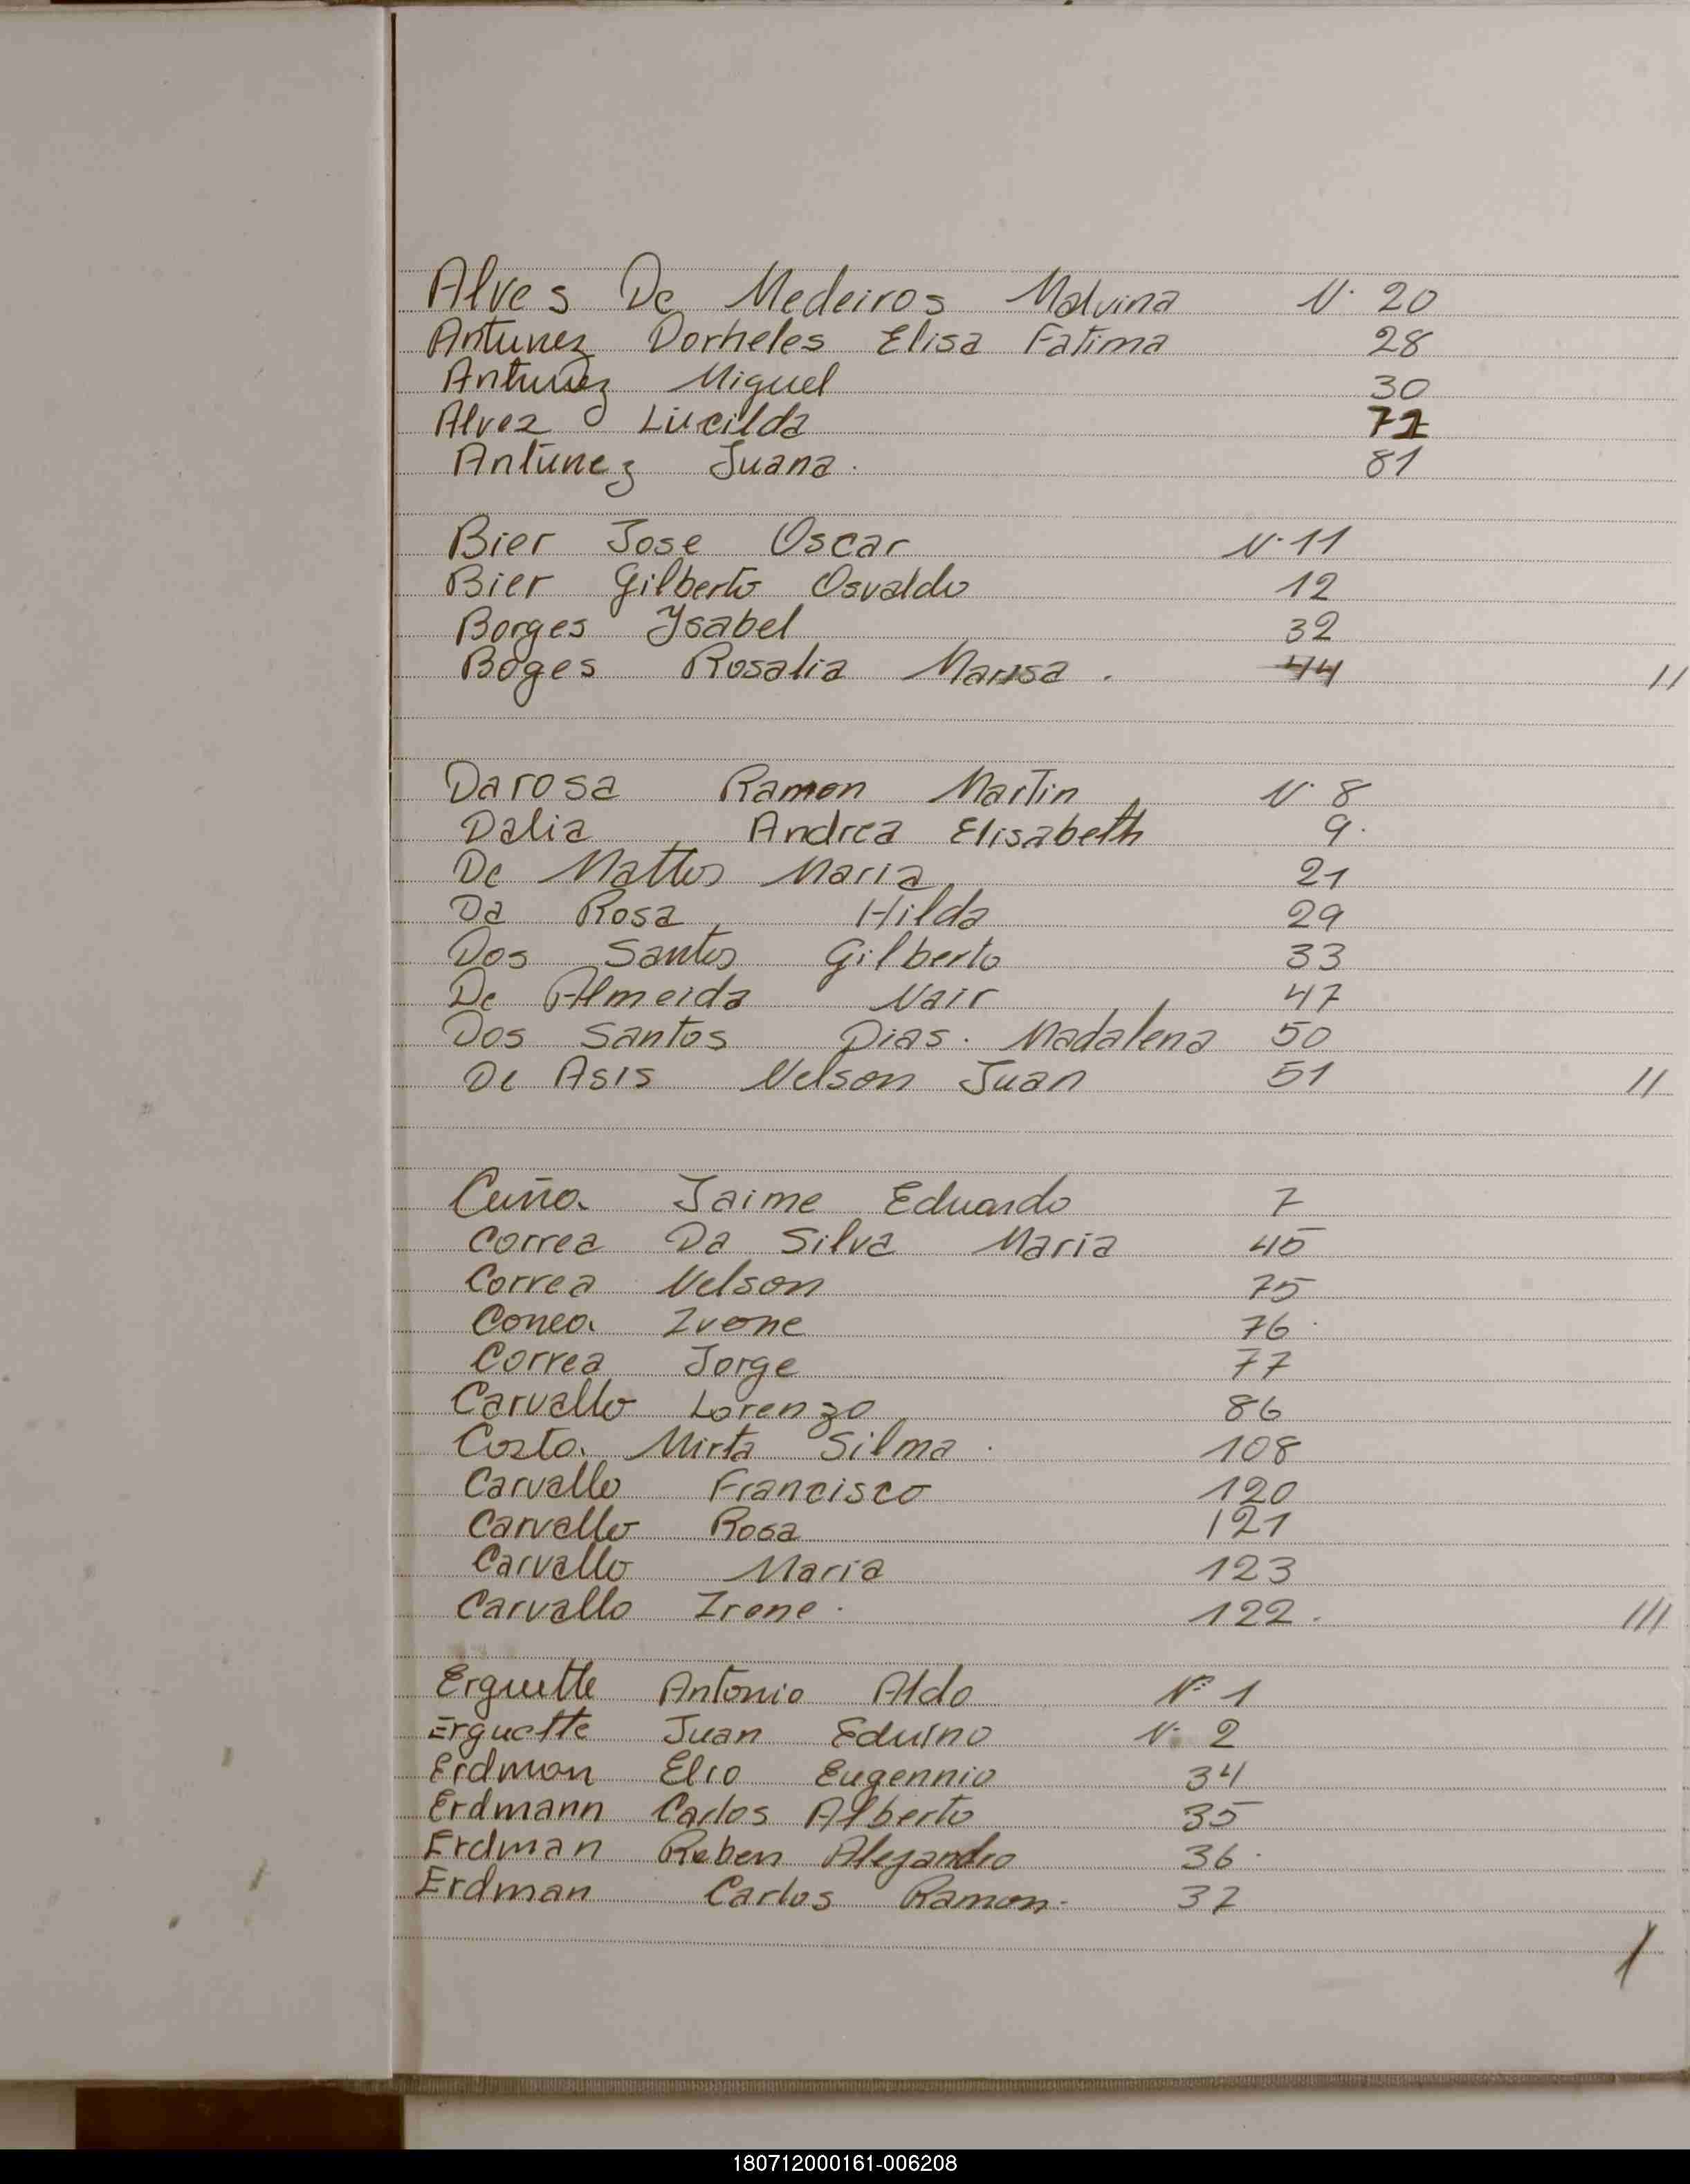 Alves De Medeiros Malvina N. 20
Antunez Dorheles Elisa Fatima 28
Antunez Miguel 30
Alvez Lucilda 71
Antúnez Juana. 81
Bier Jose Oscar N. 11
Bier Gilberto Osvaldo 12
Borges Ysabel 32
Boges Rosalia Marisa. 44 //
Darosa Ramon Martin N. 8
Dalia Andrea Elisabeth 9.
De Mattos Maria 21
Da Rosa Hilda 29
Dos Santos Gilberto 33
De Almeida Nair 47
Dos Santos Dias. Madalena 50
De Asis Nelson Juan 51 //
Cuña. Jaime Eduardo 7
Correa Da Silva Maria 45
Correa Nelson 75
Correa Ivone 76.
Correa Jorge 77
Carvallo Lorenzo 86
Costa. Mirta Silma. 108
Carvallo Francisco 120
Carvallo Rosa 121
Carvallo Maria 123
Carvallo Irene. 122. ///
Erguette Antonio Aldo Nº 1
Erguette Juan Eduino N. 2
Erdman Elio Eugennio 34
Erdmann Carlos Alberto 35
Erdman Reben Alejandro 36.
Erdman Carlos Ramon. 37
/
180712000161-006208